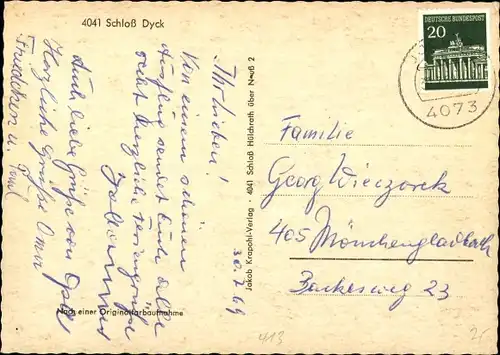 4041 Schloß Dyck
DEUTSCHE BUNDESPOST
20
4073
30.7.69
Ihr Lieben!
Von einem schönen
Ausflug sendet Euch, alle
recht herzliche Feriengrüße
Auch liebe Grüße von Opa
Herzliche Grüße Oma
Jakob Krapohl-Verlag · 4041 Schloß Hülchrath über Neuß 2
Nach einer Originalfarbaufnahme
Familie
Georg Wieczorek
405 Mönchengladbach
23
413